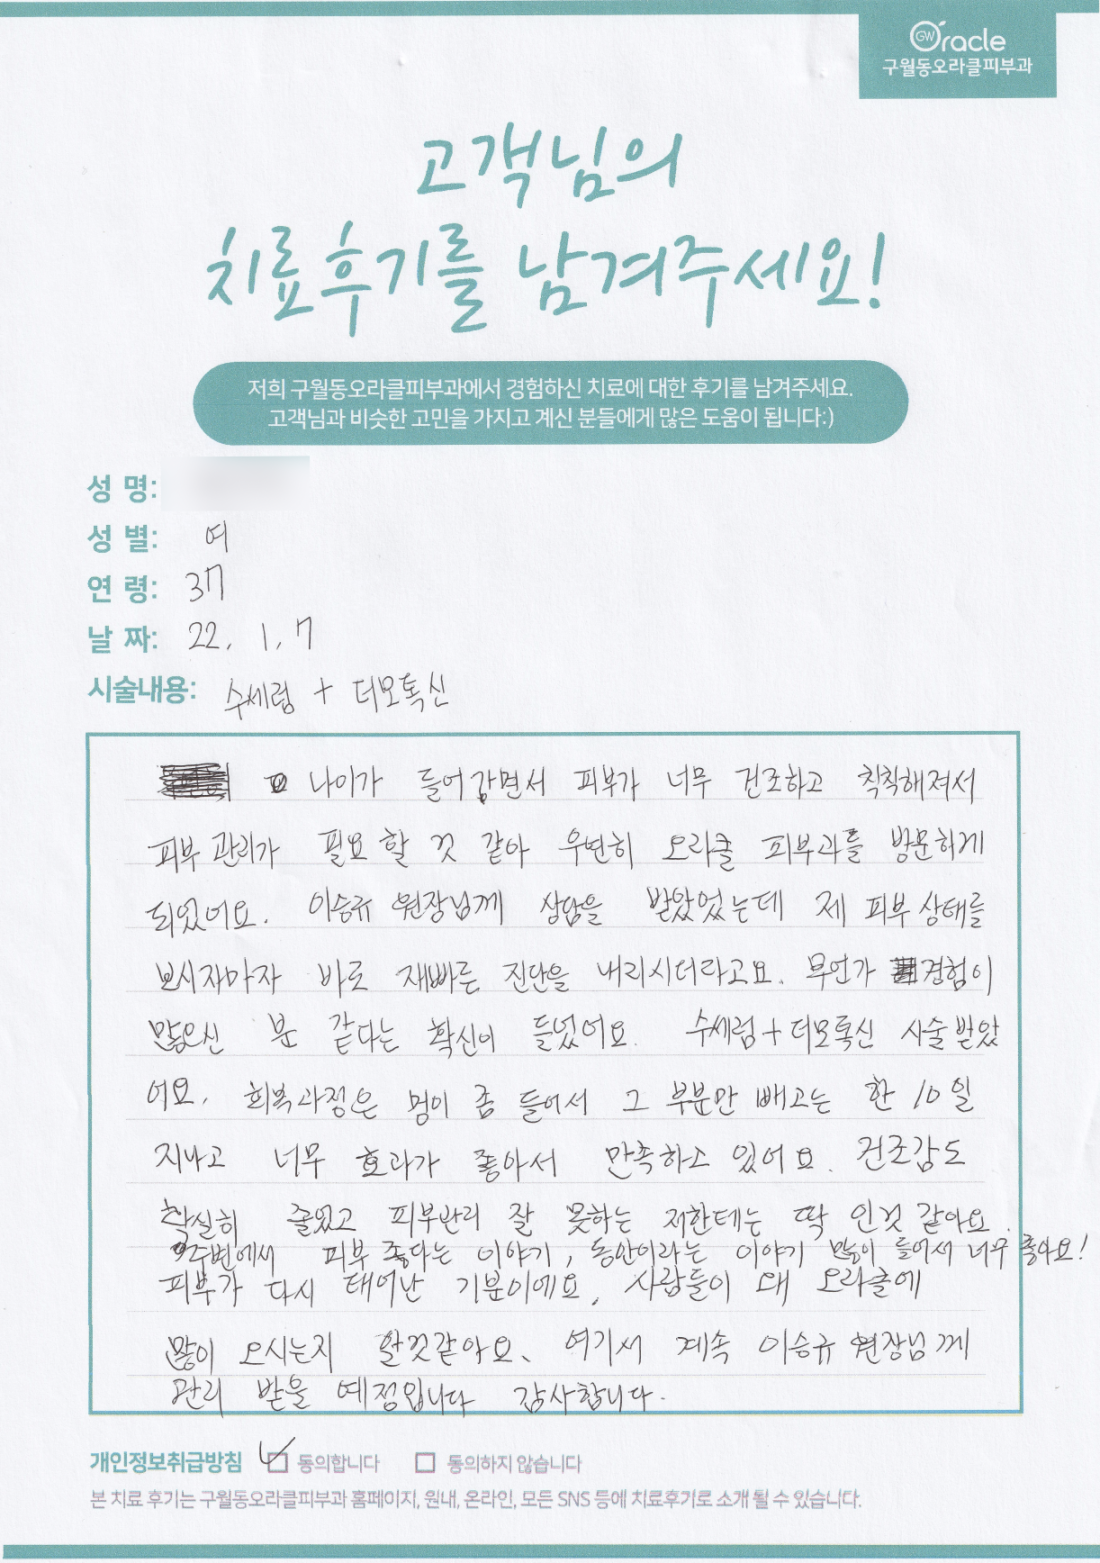 GW Oracle
구월동오라클피부과
고객님의
치료후기를 남겨주세요!
저희 구월동오라클피부과에서 경험하신 치료에 대한 후기를 남겨주세요.
고객님과 비슷한 고민을 가지고 계신 분들에게 많은 도움이 됩니다:)
성 명:
성 별: 여
연 령: 37
날 짜: 22. 1. 7
시술내용: 수세럼 + 더모톡신
나이가 들어감면서 피부가 너무 건조하고 칙칙해져서
피부관리가 필요할 것 같아 우연히 오라클 피부과를 방문하게
되었어요. 이승규 원장님께 상담을 받았었는데 제 피부상태를
보시자마자 바로 재빠른 진단을 내리시더라고요. 무언가 경험이
많으신 분 같다는 확신이 들었어요. 수세럼+더모톡신 시술받았
어요. 회복과정은 멍이 좀 들어서 그 부분만 빼고는 한 10일
지나고 너무 효과가 좋아서 만족하고 있어요. 건조감도
확실히 줄었고 피부관리 잘 못하는 저한테는 딱 인것 같아요.
주변에서 피부 좋다는 이야기, 동안이라는 이야기 많이 들어서 너무 좋아요!
피부가 다시 태어난 기분이에요. 사람들이 왜 오라클에
많이 오시는지 알것같아요. 여기서 계속 이승규 원장님께
관리 받을 예정입니다 감사합니다.
개인정보취급방침 ☑ 동의합니다 ☐ 동의하지 않습니다
본 치료 후기는 구월동오라클피부과 홈페이지, 원내, 온라인, 모든 SNS 등에 치료후기로 소개 될 수 있습니다.